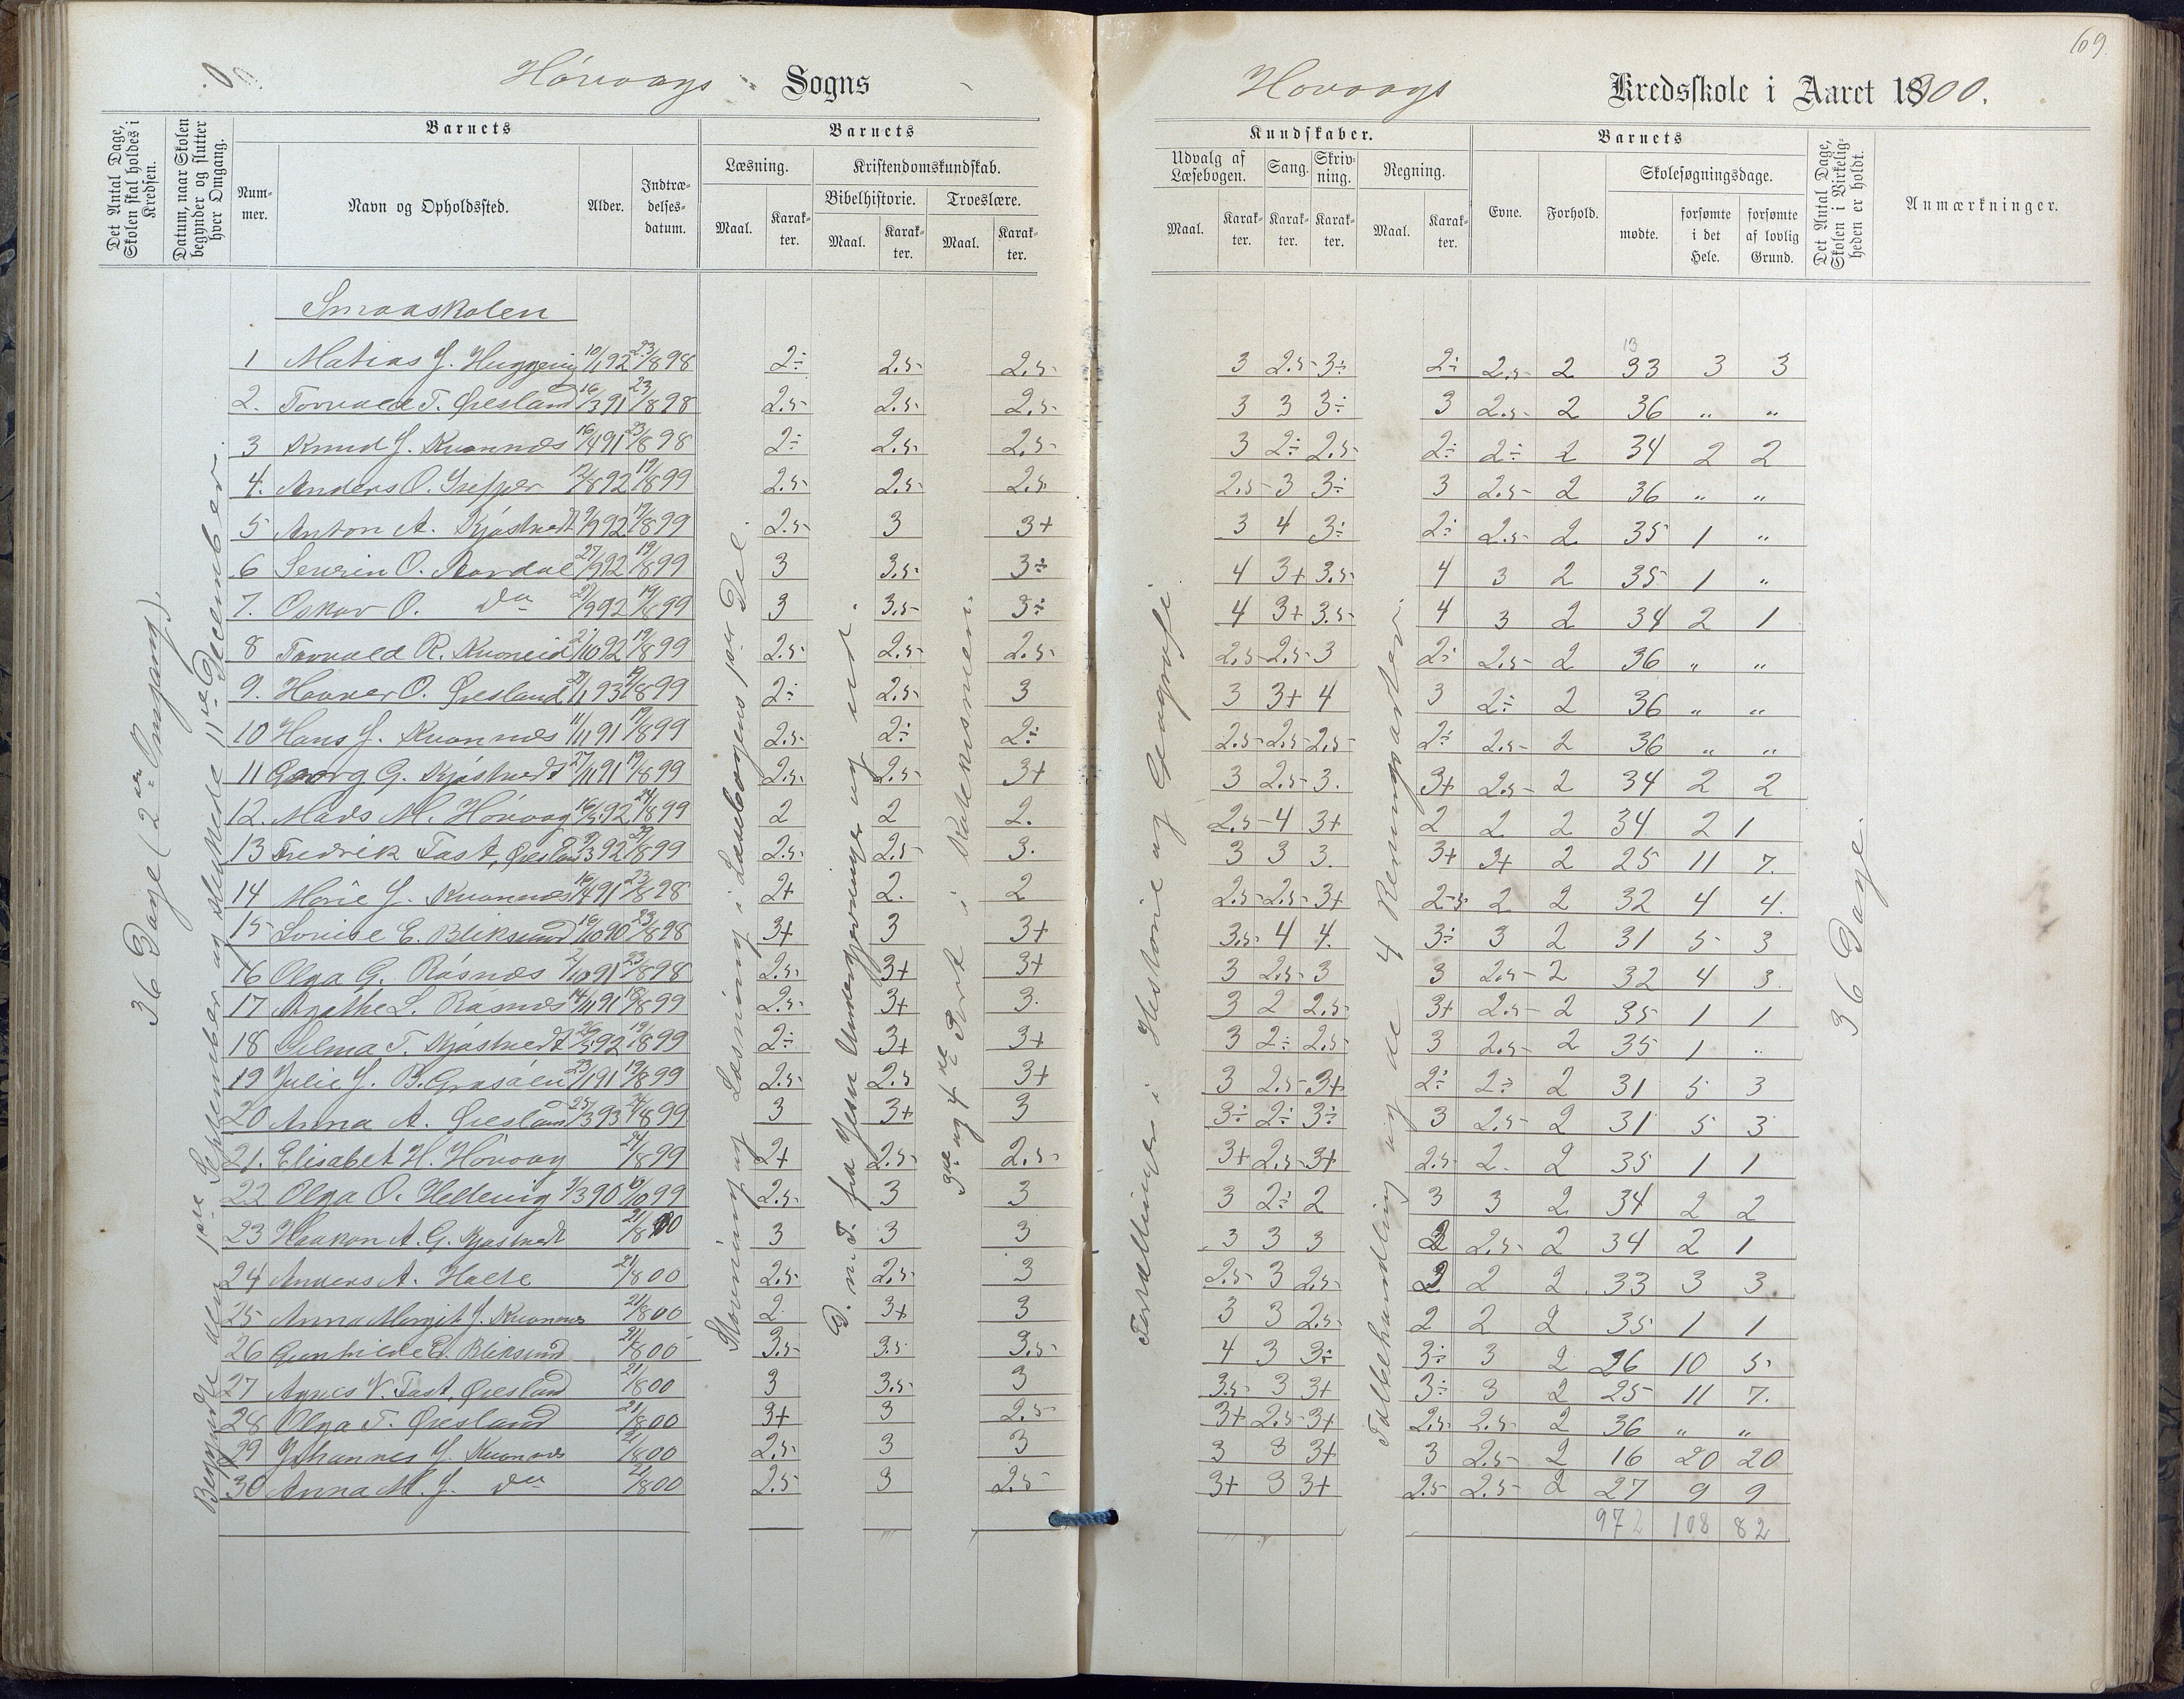 69.
Hövaags Sogns
Hovaags Kredsskole i Aaret 1900.
Det Antal Dage, Skolen skal holdes i Kredsen.
Datum, naar Skolen begynder og slutter hver Omgang.
Barnets
Nummer.
Navn og Opholdssted.
Alder.
Indtrædelsesdatum.
Barnets
Læsning.
Maal.
Karakter.
Kristendomskundskab.
Bibelhistorie.
Maal.
Karakter.
Troeslære.
Maal.
Karakter.
Kundskaber.
Udvalg af Læsebogen.
Maal.
Karakter.
Sang.
Karakter.
Skrivning.
Karakter.
Regning.
Maal.
Karakter.
Barnets
Evne.
Forhold.
Skolesøgningsdage.
mødte.
forsømte i det Hele.
forsømte af lovlig Grund.
Det Antal Dage, Skolen i Virkeligheden er holdt.
Anmærkninger.
36 Dage (2den Omgang).
Begyndte den 1ste September og sluttede 11te December.
Stavning og Læsning i Læsebogens 1ste Del.
G. n. T. fra Jesu Undergjerninger og ud.
3die og 4de Part i Katekismen.
Fortællinger i Historie og Geografi
Talbehandling og de 4 Regningsarter.
36 Dage.
Smaaskolen
1 Matias J. 10/1 92 23/8 98 2÷ 2.5 2.5 3 2.5 3÷ 2÷ 2.5 2 33 3 3
13
2. Torvald T. Øresland 16/3 91 23/8 98 2.5 2.5 2.5 3 3 3÷ 3 2.5 2 36 " "
3 Knud J. Kvannes 16/4 91 23/8 98 2÷ 2.5 2.5 3 2÷ 2.5 2÷ 2÷ 2 34 2 2
4. Anders O. 8 92 19/8 99 2.5 2.5 2.5 2.5 3 3÷ 3 2.5 2 36 " "
5 Anton A. Kjøstvedt 9 92 19/8 99 2.5 3 3+ 3 4 3÷ 2÷ 2.5 2 35 1 "
6 Severin O. 27/9 92 19/8 99 3 3.5 3÷ 4 3+ 3.5 4 3 2 35 1 "
7. Oskar O. do 27/9 92 19/8 99 3 3.5 3÷ 4 3+ 3.5 4 3 2 34 2 1
8 Torvald R. Kvoneid 2/10 92 19/8 99 2.5 2.5 2.5 2.5 2.5 3 2÷ 2.5 2 36 " "
9. O. Øresland 1 93 19/8 99 2÷ 2.5 3 3 3+ 4 3 2÷ 2 36 " "
10 Hans J. Kvannes 11/11 91 19/8 99 2.5 2÷ 2÷ 2.5 2.5 2.5 2÷ 2.5 2 36 " "
11 Georg G. Kjøstvedt 27/11 91 19/8 99 2.5 2.5 3+ 3 2.5 3. 3+ 2.5 2 34 2 2
12. Mads M. Hövaag 16/5 92 24/8 99 2 2 2. 2.5 4 3+ 2 2 2 34 2 1
13 Fredrik Tast, Øresland 3 92 8 99 2.5 2.5 3. 3 3 3. 3+ 3+ 2 25 11 7.
14 Marie J. Kvannes 16/4 91 23/8 98 2+ 2. 2 2.5 2.5 3+ 2.5 2 2 32 4 4.
15 Lovise E. Bliksund 16/10 90 23/8 98 3+ 3 3+ 3.5 4 4. 3÷ 3 2 31 5 3
16 Olga G. Råsnæs 2/10 91 23/8 98 2.5 3+ 3+ 3 2.5 3 3 2.5 2 32 4 3.
17 Agathe L. Råsnæs 14/11 91 18/8 99 2.5 3+ 3. 3 2 2.5 3+ 2.5 2 35 1 1
18 Selma T. Kjøstvedt 5 92 19/8 99 2÷ 3+ 3+ 3 2÷ 2.5 3 2.5 2 35 1 "
19 Julie J. B. Grasåen 23/1 91 19/8 99 2.5 2.5 3+ 3 2.5 3+ 2÷ 2÷ 2 31 5 3
20 Anna A. Øresland 25/3 93 24/8 99 3 3+ 3 3÷ 2÷ 3÷ 3 2.5 2 31 5 3
21. Elisabet H. Hövaag 24/8 99 2+ 2.5 2.5 3+ 2.5 3+ 2.5 2. 2 35 1 1
22 Olga O. Hellevig 3 90 10 99 2.5 3 3 3 2÷ 2 3 3 2 34 2 2
23 Haakon A. G. Kjøstvedt 21/8 00 3 3 3 3 3 3 3 2.5 2 34 2 1
24 Anders A. Holte 21/8 00 2.5 2.5 3 2.5 3 2.5 2 2 2 33 3 3.
25 Anna Margit J. Kvannes 21/8 00 2 3+ 3 3 3 2.5 2 2 2 35 1 1
26 Gunhilde E. Bliksund 21/8 00 3.5 3.5 3.5 4 3 3÷ 3÷ 3 2 26 10 5
27 Agnes V. Tast, Øresland 21/8 00 3 3.5 3 3.5 3 3+ 3÷ 3 2 25 11 7.
28 Olga T. Øresland 21/8 00 3+ 3 2.5 3+ 2.5 3+ 2.5 2.5 2 36 " "
29 Johannes J. Kvannes 21/8 00 2.5 3 3 3 3 3+ 3 2.5 2 16 20 20
30 Anna M. J. do 21/8 00 2.5 3 2.5 3+ 3 3+ 2.5 2.5 2 27 9 9
972 108 82